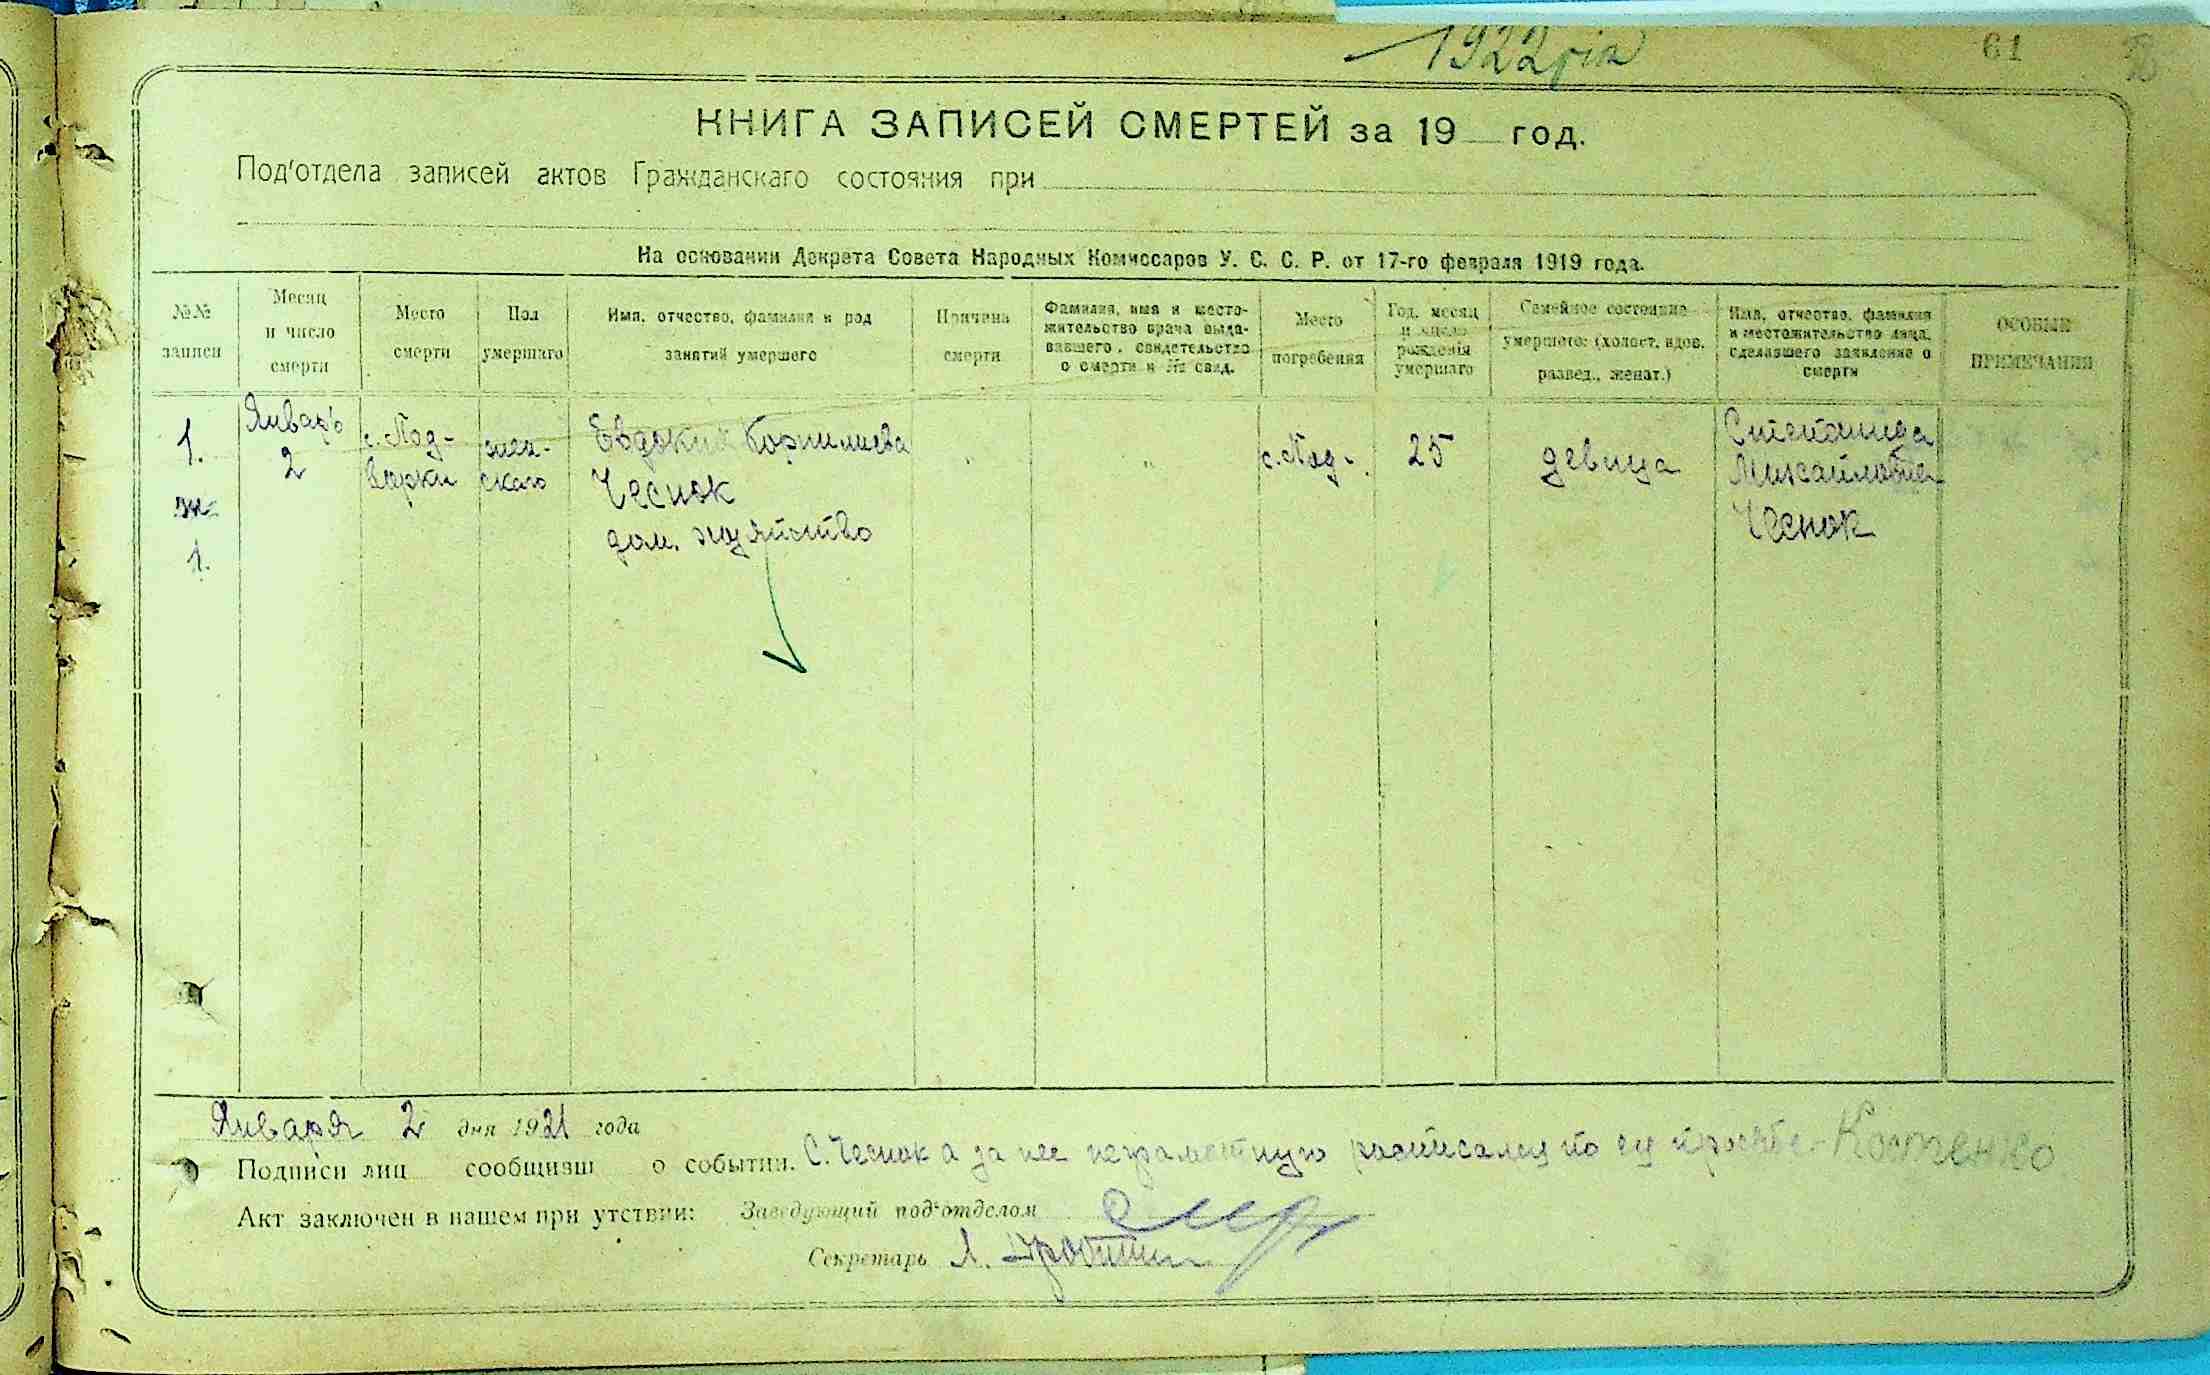 1922 рік
61
КНИГА ЗАПИСЕЙ СМЕРТЕЙ за 19 год.
Под'отдела записей актов Гражданскаго состояния при
На основании Декрета Совета Народных Комиссаров У. С. С. Р. от 17-го февраля 1919 года.
№№ записи
Месяц и число смерти
Место смерти
Пол умершаго
Имя, отчество, фамилия и род занятий умершего
Причина смерти
Фамилия, имя и место-жительство врача выда-вавшего свидетельство о смерти и № свид.
Место погребения
Год, месяц и число рождения умершаго
Семейное состояние умершого: (холост, вдов, развед., женат.)
Имя, отчество, фамилия и местожительство лица, сделавшего заявление о смерти
ОСОБЫЕ ПРИМЕЧАНИЯ
1.
ж
1.
Январь
2
с. Под-
ворки
жен-
скаго
Евдокия Корнилиева
Чеснок
дом. хозяйство
"
с. Под-
25
девица
Степанида
Михайловна
Чеснок
Января 2 дня 1921 года
Подписи лиц сообщивш о событии. С. Чеснок а за нее неграмотную расписался по ея просьбе Костенко
Акт заключен в нашем при утствии: Заведующий под'отделом
Секретарь Л.